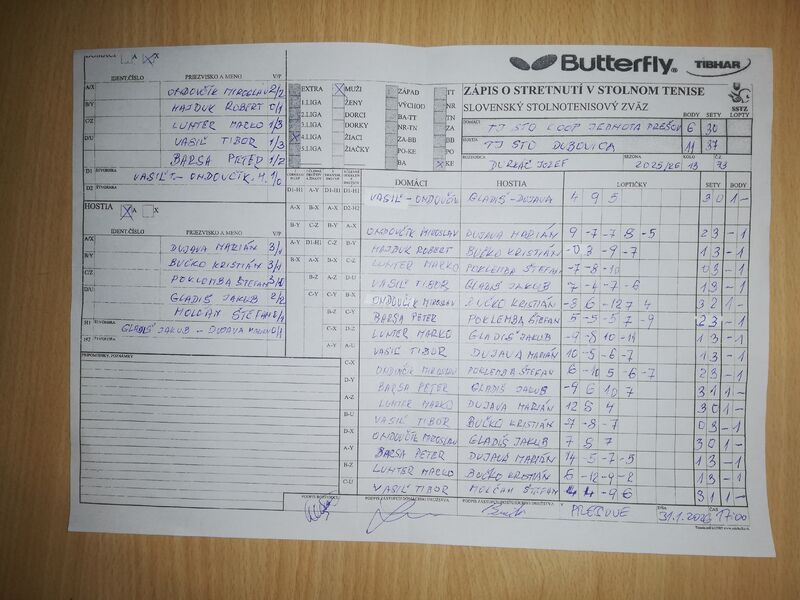 Butterfly® TIBHAR
ZÁPIS O STRETNUTÍ V STOLNOM TENISE
SLOVENSKÝ STOLNOTENISOVÝ ZVÄZ
SSTZ
BODY SETY LOPTY
DOMÁCI TJ STO LOOP JEDNOTA PREŠOV 6 30
HOSTIA TJ STO DUBOVICA 11 37
ROZHODCA DURKÁČ JOZEF SEZÓNA 2025/26 KOLO 13 Č.Z. 73
DOMÁCI A X
IDENT.ČÍSLO PRIEZVISKO A MENO V/P
A/X ONDOVČÍK MIROSLAV 2/2
B/Y HAJDUK ROBERT 0/1
C/Z LUNTER MARKO 1/3
D/U VASIĽ TIBOR 1/3
BARSA PETER 1/2
D1 ŠTVORHRA VASIĽ T. - ONDOVČÍK M. 1/0
D2 ŠTVORHRA
HOSTIA A X
IDENT.ČÍSLO PRIEZVISKO A MENO V/P
A/X DUJAVA MARIÁN 3/1
B/Y BUČKO KRISTIÁN 3/1
C/Z POKLEMBA ŠTEFAN
D/U GLADIŠ JAKUB 2/2
MOLČAN ŠTEFAN
H1 ŠTVORHRA GLADIŠ JAKUB - DUJAVA
H2 ŠTVORHRA
PRIPOMIENKY, POZNÁMKY
EXTRA MUŽI ZÁPAD TT
1.LIGA ŽENY VÝCHOD NR
2.LIGA DORCI BA-TT TN
3.LIGA DORKY NR-TN ZA
4.LIGA ŽIACI ZA-BB BB
5.LIGA ŽIAČKY PO-KE PO
BA KE
DOMÁCI HOSTIA LOPTIČKY SETY BODY
VASIĽ - ONDOVČÍK GLADIŠ - DUJAVA 4 9 5 3 0 1 -
ONDOVČÍK MIROSLAV DUJAVA MARIÁN 9 -7 -7 8 -5 2 3 - 1
HAJDUK ROBERT BUČKO KRISTIÁN -0 3 -9 -7 1 3 - 1
LUNTER MARKO POKLEMBA ŠTEFAN -7 -8 -10 0 3 - 1
VASIĽ TIBOR GLADIŠ JAKUB 7 -4 -7 -6 1 3 - 1
ONDOVČÍK MIROSLAV BUČKO KRISTIÁN -3 6 -12 7 4 3 2 1 -
BARSA PETER POKLEMBA ŠTEFAN 5 -5 -5 7 -9 2 3 - 1
LUNTER MARKO GLADIŠ JAKUB 1 3 - 1
VASIĽ TIBOR DUJAVA MARIÁN 10 -5 -6 -7 1 3 - 1
ONDOVČÍK MIROSLAV POKLEMBA ŠTEFAN 6 -10 5 -6 -7 2 3 - 1
BARSA PETER GLADIŠ JAKUB -9 6 10 7 3 1 1 -
LUNTER MARKO DUJAVA MARIÁN 12 8 4 3 0 1 -
VASIĽ TIBOR BUČKO KRISTIÁN -7 -8 -7 0 3 - 1
ONDOVČÍK MIROSLAV GLADIŠ JAKUB 7 8 7 3 0 1 -
BARSA PETER DUJAVA MARIÁN 14 -5 -7 -5 1 3 - 1
LUNTER MARKO BUČKO KRISTIÁN 6 -12 -9 -2 1 3 - 1
VASIĽ TIBOR MOLČAN ŠTEFAN 4 -9 6 3 1 1 -
PODPIS ROZHODCU PODPIS ZÁSTUPCU DOMÁCEHO DRUŽSTVA PODPIS ZÁSTUPCU HOSŤUJÚCEHO DRUŽSTVA PREŠOVE DŇA 31.1.2026 ČAS 17:00